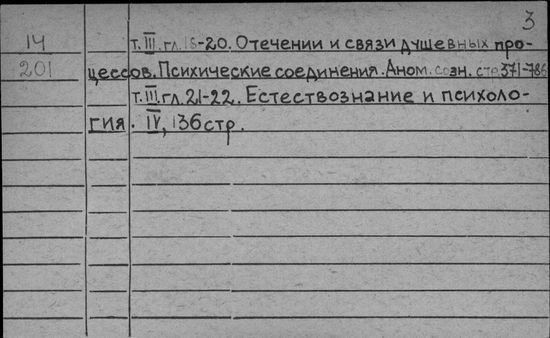 3
14 т. III. гл. 18-20. О течении и связи душевных про-
201 цессов. Психические соединения. Аном. созн. стр 371-786
т. III. гл. 21-22. Естествознание и психоло-
гия. IV, 136 стр.